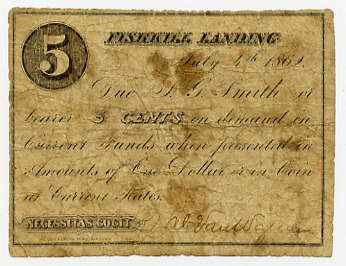 5
FISHKILL LANDING
July 4th 1862.
Due S. G. Smith or
bearer 5 CENTS on demand in
Current Funds when presented in
Amounts of One Dollar or in Coin
at Current Rates.
NECESSITAS COGIT